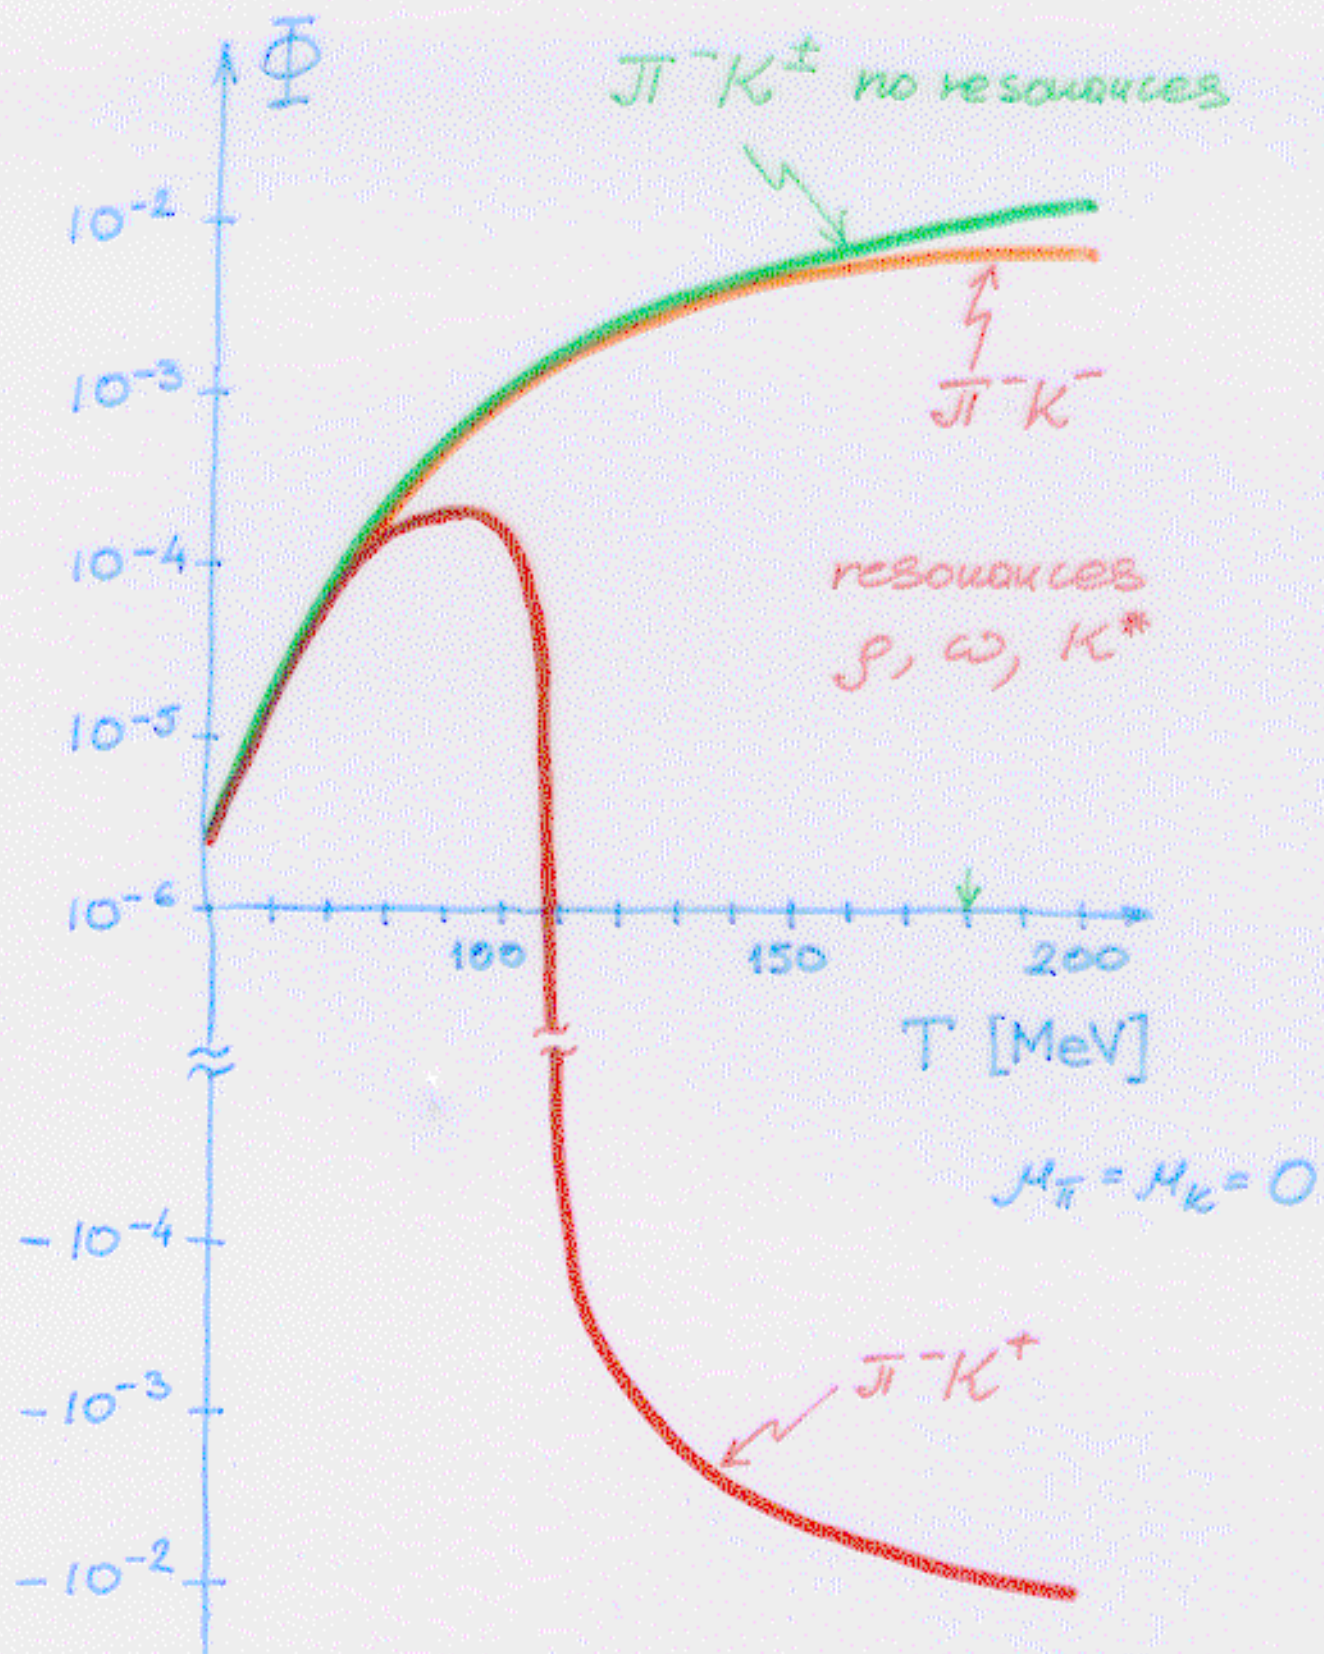 Φ
π⁻K± no resonances
10⁻²
π⁻K⁻
10⁻³
10⁻⁴
resonances
ρ, ω, K*
10⁻⁵
10⁻⁶
100 150 200
T [MeV]
μπ = μK = 0
-10⁻⁴
π⁻K⁺
-10⁻³
-10⁻²